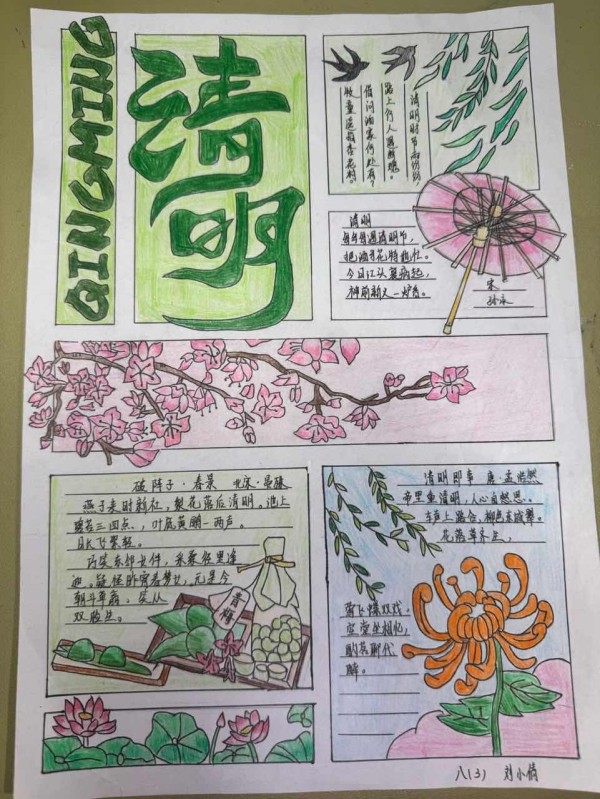 QINGMING
清明
清明时节雨纷纷，
路上行人欲断魂。
借问酒家何处有？
牧童遥指杏花村。
清明
每年每遇清明节，
把酒寻花特地忙。
今日江头衰病起，
前新火一炉香。
宋
破阵子·春景 北宋·晏殊
燕子来时新社，梨花落后清明。池上
碧苔三四点，，叶底黄鹂一两声。
日长飞絮轻。
巧笑东邻女伴，采桑径里逢
迎。疑怪昨宵春梦好，元是今
朝斗草赢。笑从
双脸生。
青梅
清明即事 唐·孟浩然
帝里重清明，人心自愁思。
车声上路合，柳色东城翠。
花落草齐生，
莺飞蝶双戏。
空堂坐相忆，
酌茗聊代
醉。
八（3） 刘小倩